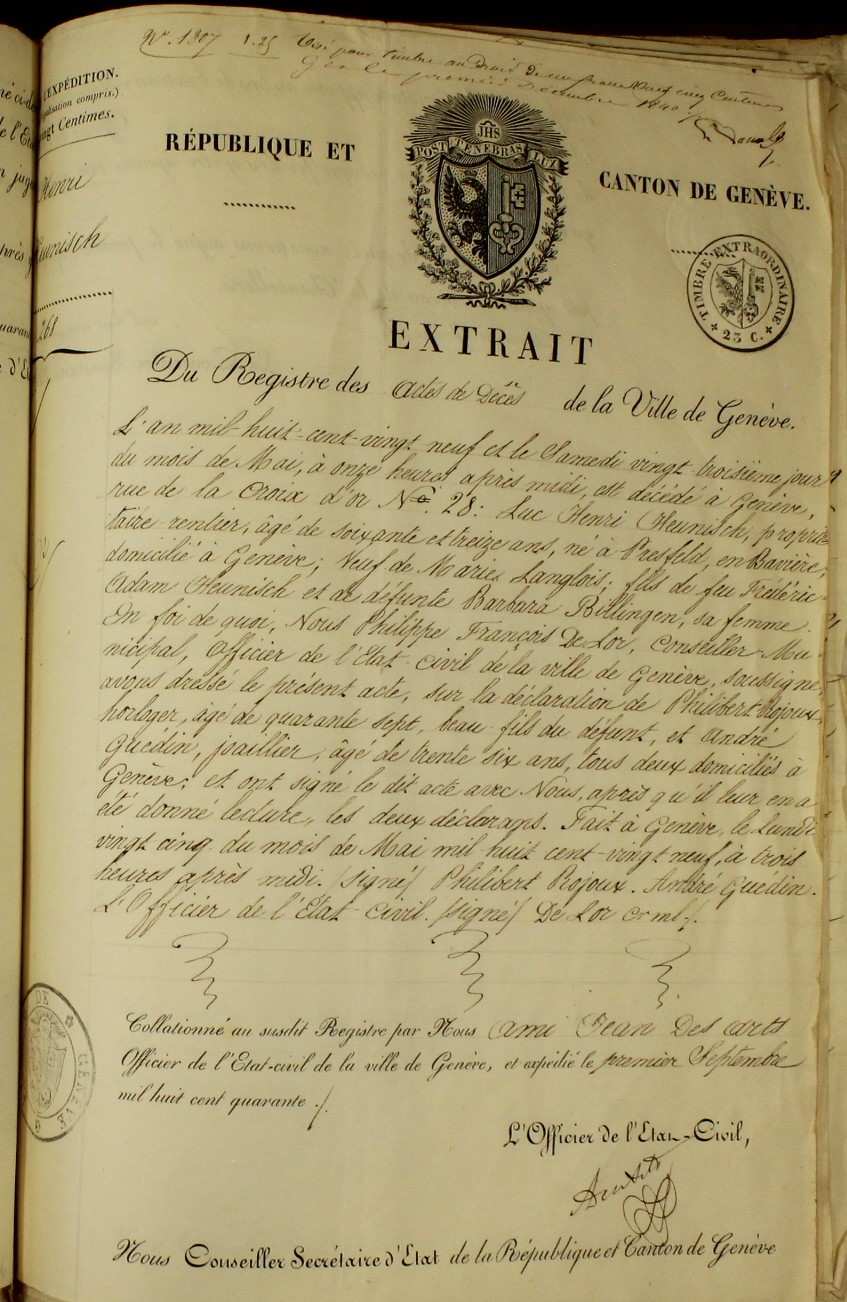 N°. 1307 1.25 Visé pour timbre au Droit de un franc vingt cinq Centimes
le premier 1840
L'EXPÉDITION.
compris.)
Centimes.
RÉPUBLIQUE ET
JHS
POST TENEBRAS LUX
CANTON DE GENÈVE.
Henri
Heunisch
261
TIMBRE EXTRAORDINAIRE
25 C.
EXTRAIT
Du Registre des Actes de Décès de la Ville de Genève.
L'an mil-huit-cent-vingt neuf et le Samedi vingt-troisième jour
du mois de Mai, à onze heures après midi, est décédé à Genève,
rue de la Croix d'or N° 28: Luc Henri Heunisch, proprié
taire-rentier, âgé de soixante et treize ans, né à Presfeld, en Bavière,
domicilié à Genève; Veuf de Marie Langlois; fils de feu Frédéric
Adam Heunisch et de défunte Barbara Billingen, sa femme.
En foi de quoi, Nous Philippe François De Lor, Conseiller Mu-
nicipal, Officier de l'Etat-civil de la ville de Genève, soussigné,
avons dressé le présent acte, sur la déclaration de Philibert Rojoux,
horloger, âgé de quarante sept, beau-fils du défunt, et André
Guédin, joaillier, âgé de trente six ans, tous deux domiciliés à
Genève; et ont signé le dit acte avec Nous, après qu'il leur en a
été donné lecture, les deux déclarans. Fait à Genève, le Lundi
vingt cinq du mois de Mai mil huit cent-vingt neuf, à trois
heures après midi. /signé/ Philibert Rojoux. André Guédin.
L'Officier de l'Etat-Civil. /signé/ De Lor
Collationné au susdit Registre par Nous Ami Jean Des Arts
Officier de l'Etat-civil de la ville de Genève, et expédié le premier Septembre
mil huit cent quarante ./.
L'Officier de l'Etat-Civil,
Nous Conseiller Secrétaire d'Etat de la République et Canton de Genève